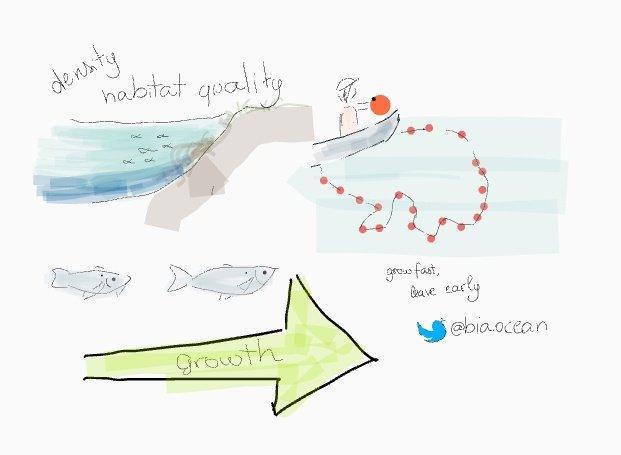 density
habitat quality
grow fast,
leave early
@bia.ocean
growth